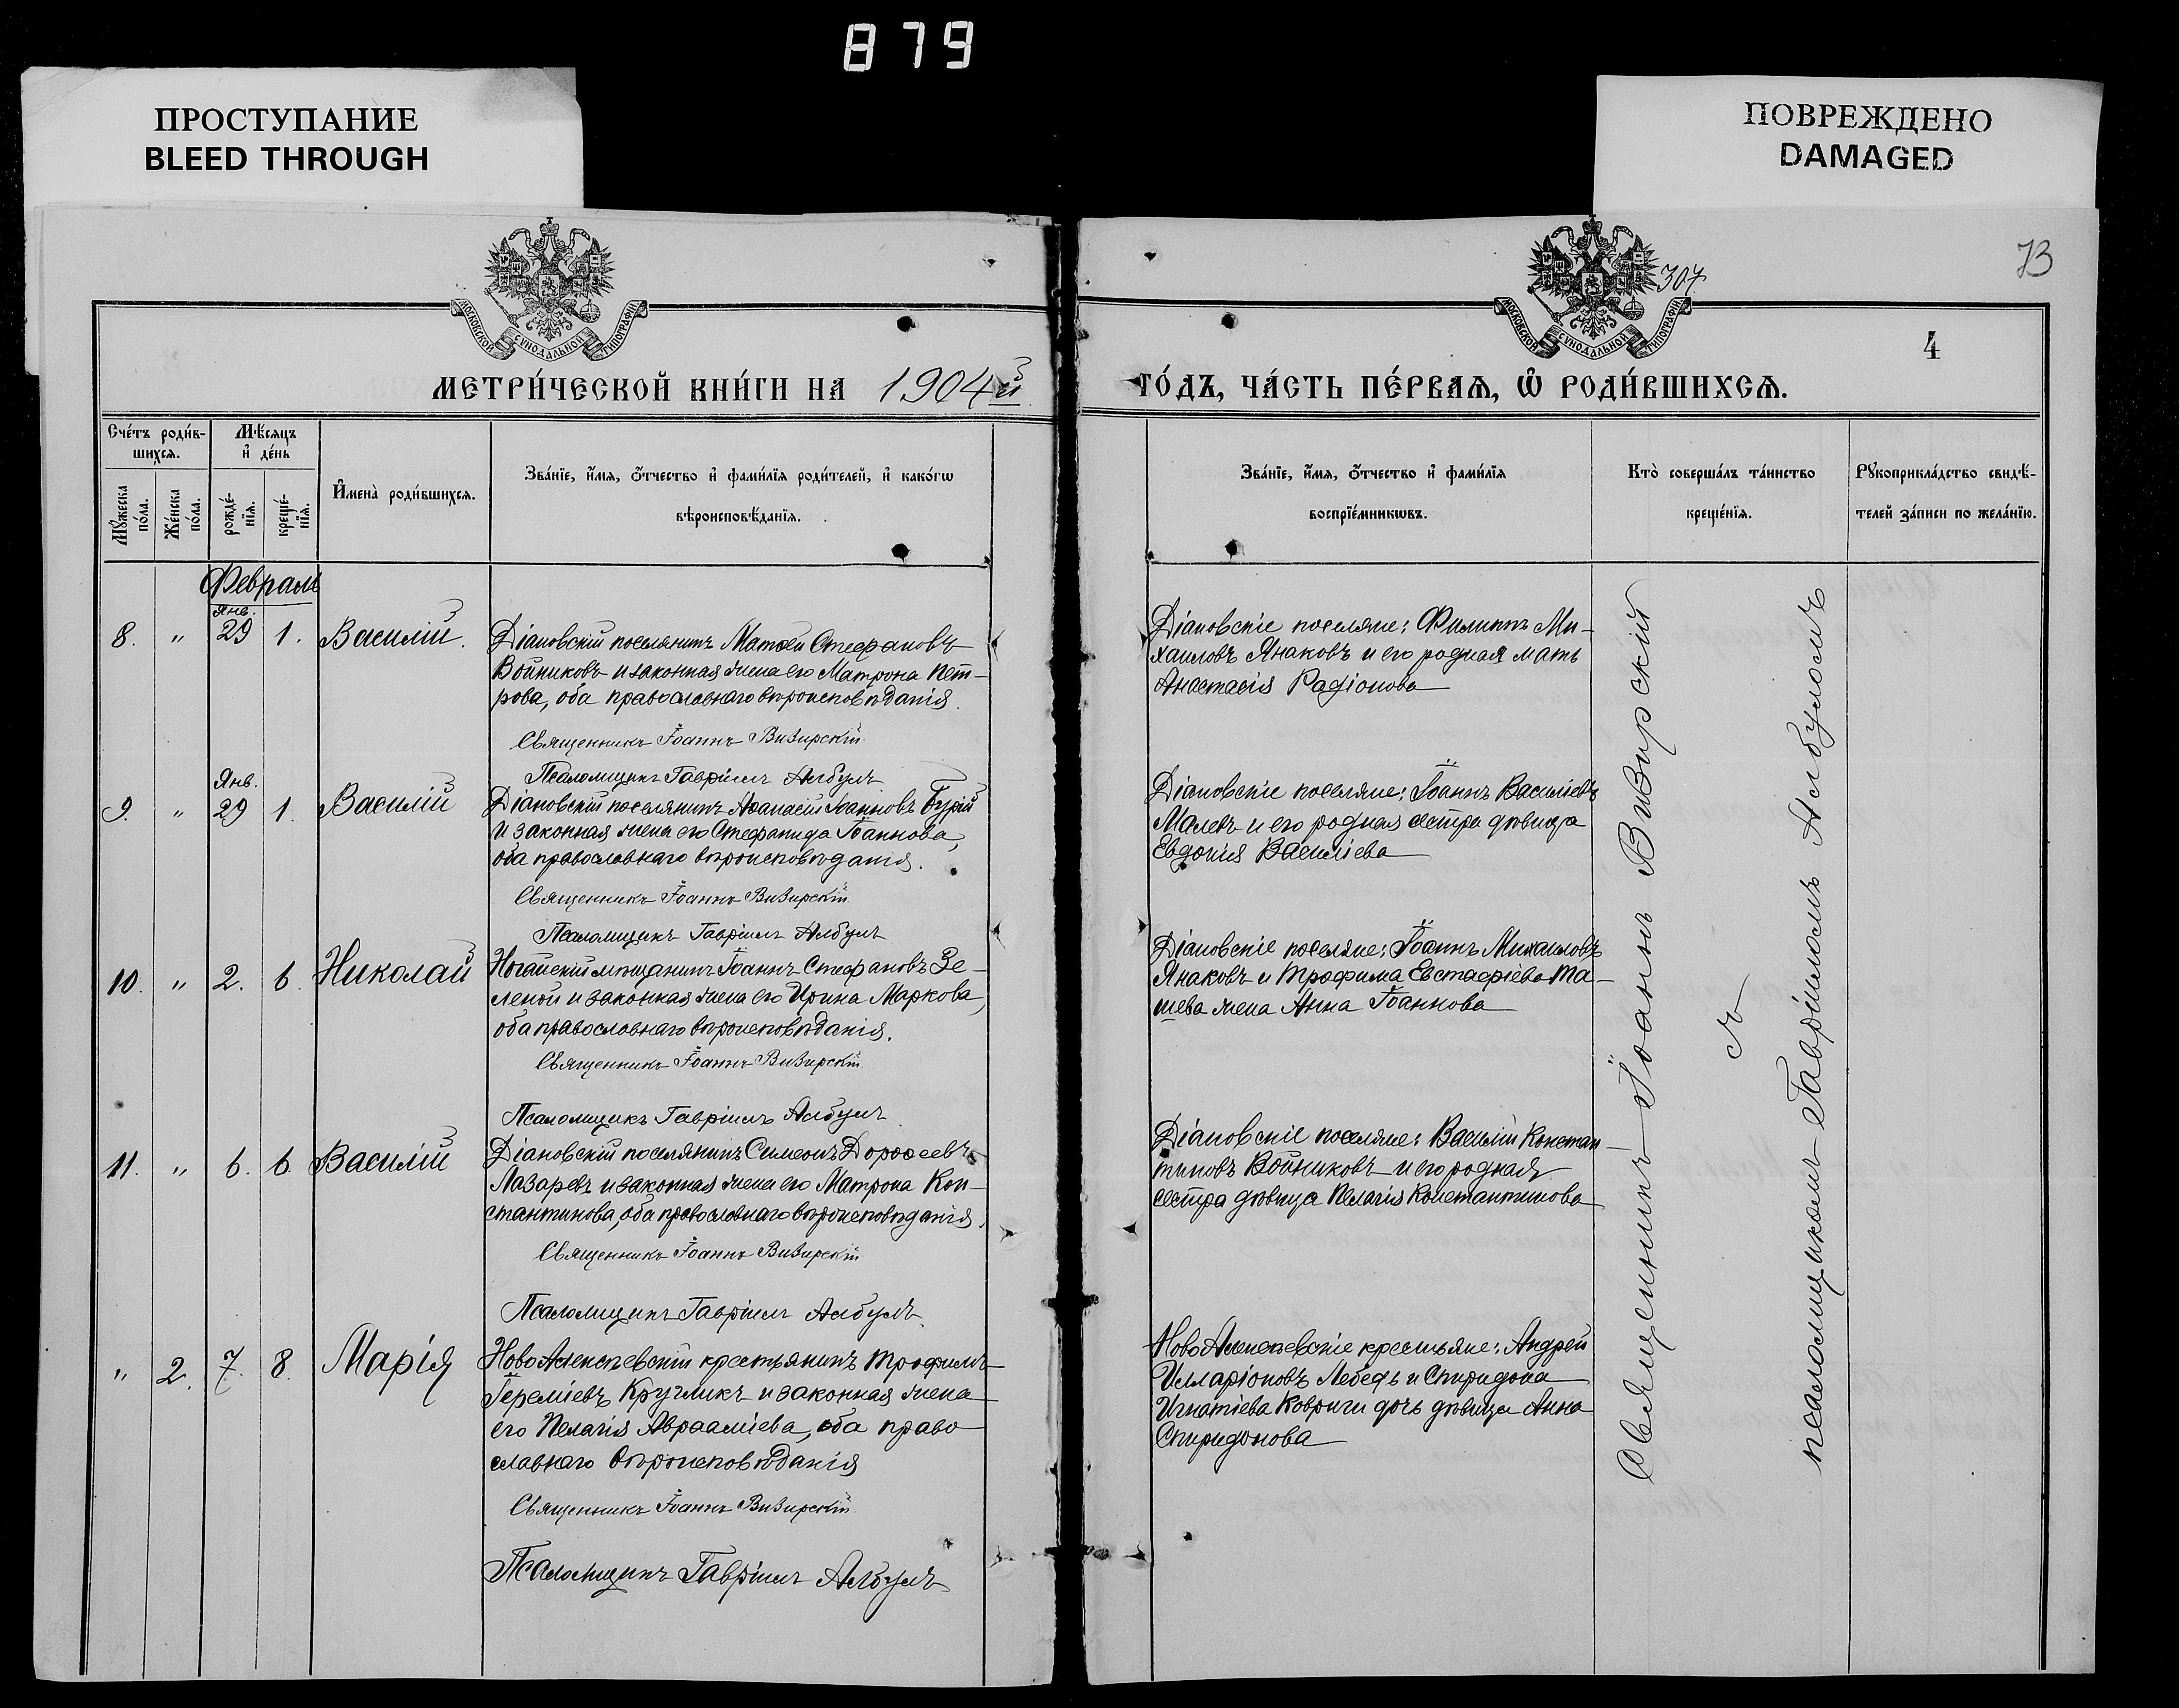 879
ПРОСТУПАНИЕ
BLEED THROUGH
ПОВРЕЖДЕНО
DAMAGED
73
307
4
МОСКОВСКОЙ СѴНОДАЛЬНОЙ ТИПОГРАФІИ
МОСКОВСКОЙ СѴНОДАЛЬНОЙ ТИПОГРАФІИ
МЕТРИ́ЧЕСКОЙ КНИ́ГИ НА 1904й
ГО́ДЪ, ЧА́СТЬ ПЕ́РВАѦ, Ѡ РОДИ́ВШИХСѦ.
Сче́тъ роди́в-
шихсѧ.
Мѣ́сѧцъ
и де́нь
Мꙋ́жеска по́ла.
Же́нска по́ла.
рожде́-нїѧ.
креще́-нїѧ.
И҆мена̀ роди́вшихсѧ.
Зва́нїе, и҆́мѧ, ѻ҆́тчество и҆ фами́лїѧ роди́телей, и҆ како́гѡ
вѣроисповѣ́данїѧ.
Зва́нїе, и҆́мѧ, ѻ҆́тчество и҆ фами́лїѧ
воспрїе́мникѡвъ.
Кто̀ соверша́лъ та́инство
креще́нїѧ.
Рꙋкоприкла́дство свидѣ́-
телей за́писи по жела́нїю.
Февраль
8. " Янв. 29 1. Василій.
Діановскій поселянинъ Матѳей Стефановъ
Войниковъ и законная жена его Матрона Пет-
рова, оба православнаго вѣроисповѣданія.
Священникъ Іоаннъ Визирскій
Псаломщикъ Гавріилъ Албулъ
Діановскіе поселяне: Филиппъ Ми-
хаиловъ Янаковъ и его родная мать
Анастасія Радіонова
9. " Янв. 29 1. Василій
Діановскій поселянинъ Аѳанасій Іоанновъ
и законная жена его Стефанида Іоаннова,
оба православнаго вѣроисповѣданія.
Священникъ Іоаннъ Визирскій
Псаломщикъ Гавріилъ Албулъ
Діановскіе поселяне: Іоаннъ Василіевъ
Малевъ и его родная сестра дѣвица
Евдокія Василіева
10. " 2. 6. Николай
Ногайскій мѣщанинъ Іоаннъ Стефановъ Зе-
леной и законная жена его Ирина Маркова,
оба православнаго вѣроисповѣданія.
Священникъ Іоаннъ Визирскій
Псаломщикъ Гавріилъ Албулъ
Діановскіе поселяне: Іоаннъ Михаиловъ
Янаковъ и Трофима Евстафіева Та-
шева жена Анна Іоаннова
11. " 6. 6. Василій
Діановскій поселянинъ Симеонъ Дороѳеевъ
Лазаревъ и законная жена его Матрона Кон-
стантинова, оба православнаго вѣроисповѣданія.
Священникъ Іоаннъ Визирскій
Псаломщикъ Гавріилъ Албулъ
Діановскіе поселяне: Василій Констан-
тиновъ Войниковъ и его родная
сестра дѣвица Пелагія Константинова
" 2. 7. 8. Марія
НовоАлексѣевскій крестьянинъ Трофимъ
Іереміевъ Кругликъ и законная жена
его Пелагія Авраамiева, оба право-
славнаго вѣроисповѣданія
Священникъ Іоаннъ Визирскій
Псаломщикъ Гавріилъ Албулъ
НовоАлексѣевскіе крестьяне: Андрей
Илларіоновъ Лебедь и Спиридона
Игнатіева Ковриги дочь дѣвица Анна
Спиридонова
Священникъ Іоаннъ Визирскій
съ
псаломщикомъ Гавріиломъ Албуломъ